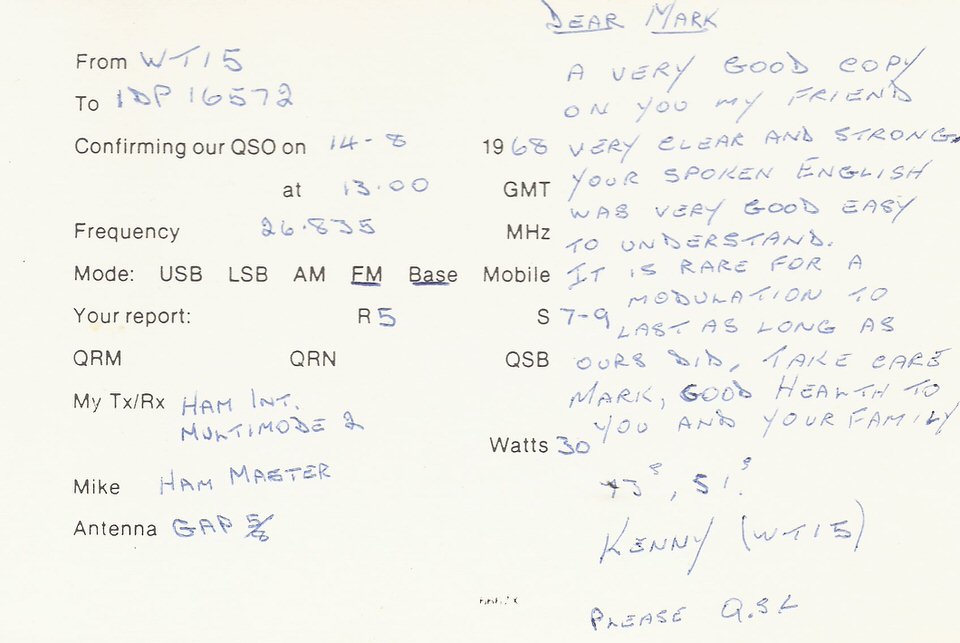 From WT15
To 1DP 16572
Confirming our QSO on 14-8 1968
at 13.00 GMT
Frequency 26.835 MHz
Mode: USB LSB AM FM Base Mobile
Your report: R5 S 7-9
QRM QRN QSB
My Tx/Rx HAM INT.
MULTIMODE 2
Watts 30
Mike HAM MASTER
Antenna GAP 5/8
DEAR MARK
A VERY GOOD COPY
ON YOU MY FRIEND
VERY CLEAR AND STRONG,
YOUR SPOKEN ENGLISH
WAS VERY GOOD EASY
TO UNDERSTAND.
IT IS RARE FOR A
MODULATION TO
LAST AS LONG AS
OURS DID, TAKE CARE
MARK, GOOD HEALTH TO
YOU AND YOUR FAMILY
73s, 51s
KENNY (WT15)
PLEASE Q.S.L